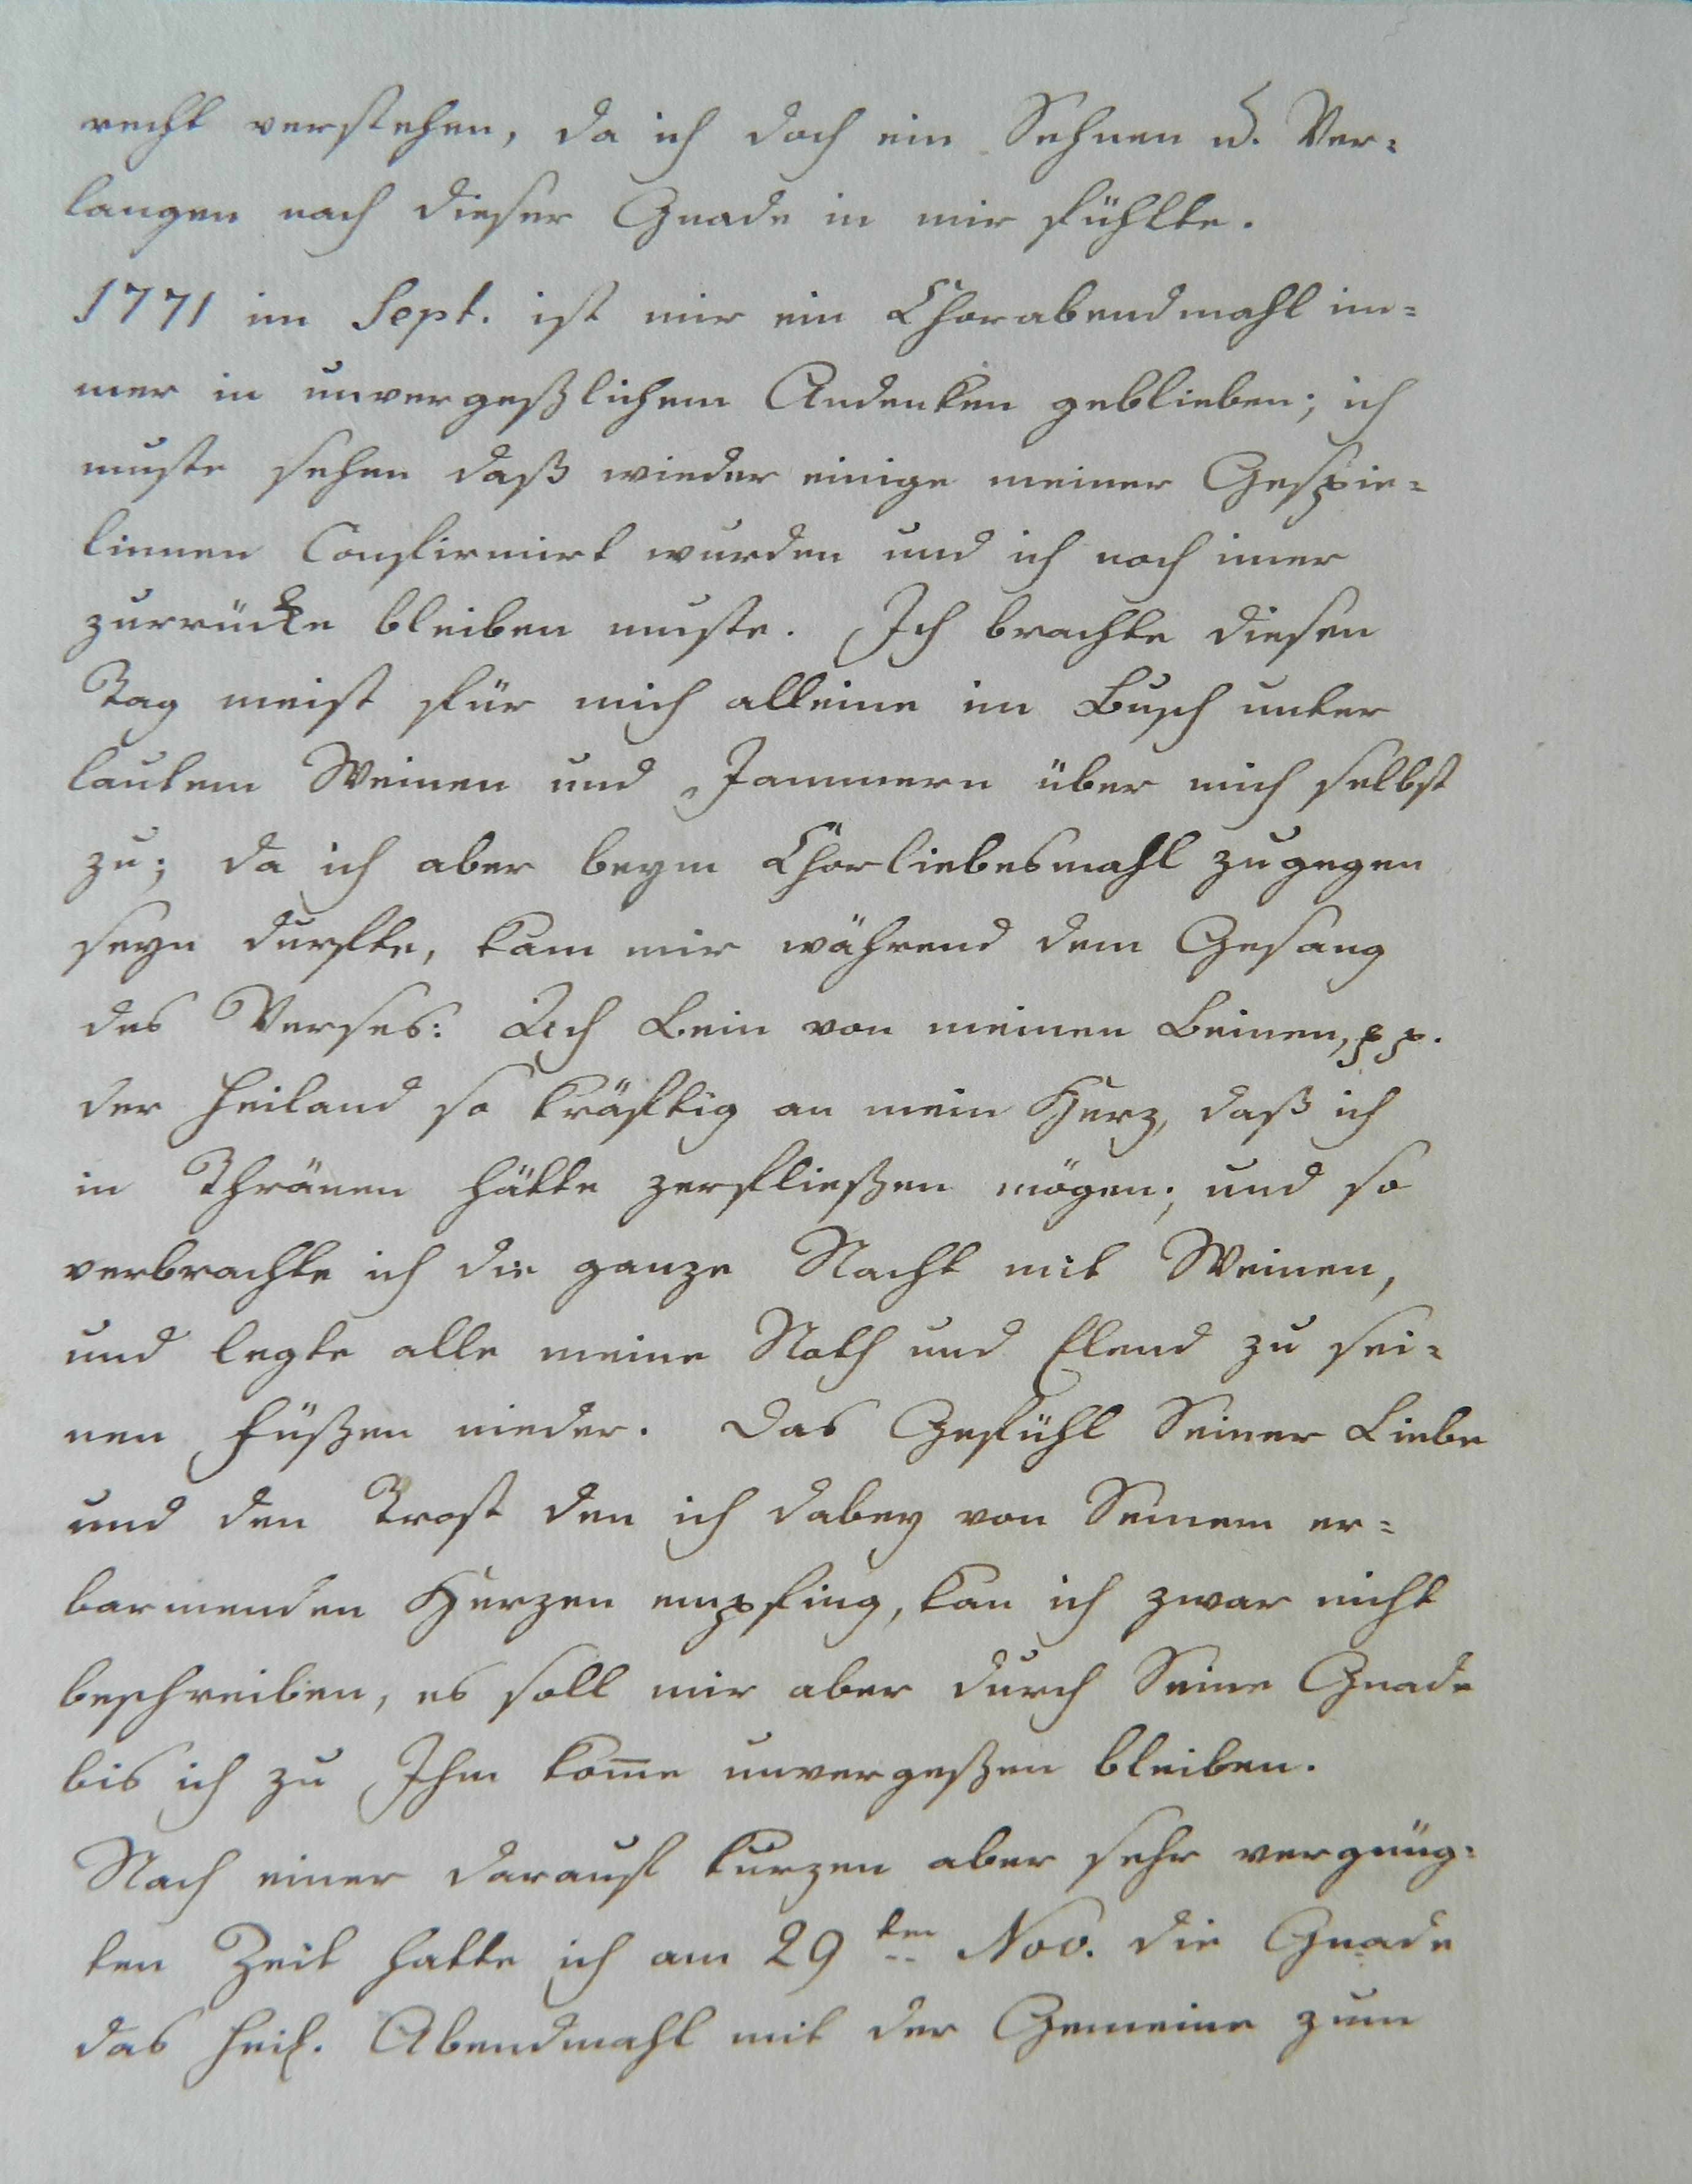 recht verstehen, da ich doch ein Sehnen u. Ver-
langen nach dieser Gnade in mir fühlte.
1771 im Sept. ist mir ein Chorabendmahl im-
mer in unvergeßlichem Andenken geblieben; ich
muste sehen daß wieder einige meiner Gespie-
linnen Confirmirt wurden und ich noch imer
zurrücke bleiben muste. Ich brachte diesen
Tag meist für mich alleine im Busch unter
lautem Weinen und Jammern über mich selbst
zu; da ich aber beym Chorliebesmahl zugegen
seyn durfte, kam mir während dem Gesang
des Verses: Ach Bein von meinen Beinen, pp.
der Heiland so kräftig an mein Herz, daß ich
in Thränen hätte zerfließen mögen; und so
verbrachte ich die ganze Nacht mit Weinen,
und legte alle meine Noth und Elend zu sei-
nen Füßen nieder. Das Gefühl Seiner Liebe
und den Trost den ich dabey von Seinem er-
barmenden Herzen empfing, kan ich zwar nicht
beschreiben, es soll mir aber durch Seine Gnade
bis ich zu Ihm kom̅e unvergeßen bleiben.
Nach einer darauf kurzen aber sehr vergnüg-
ten Zeit hatte ich am 29ten Nov. die Gnade
das heil. Abendmahl mit der Gemeine zum